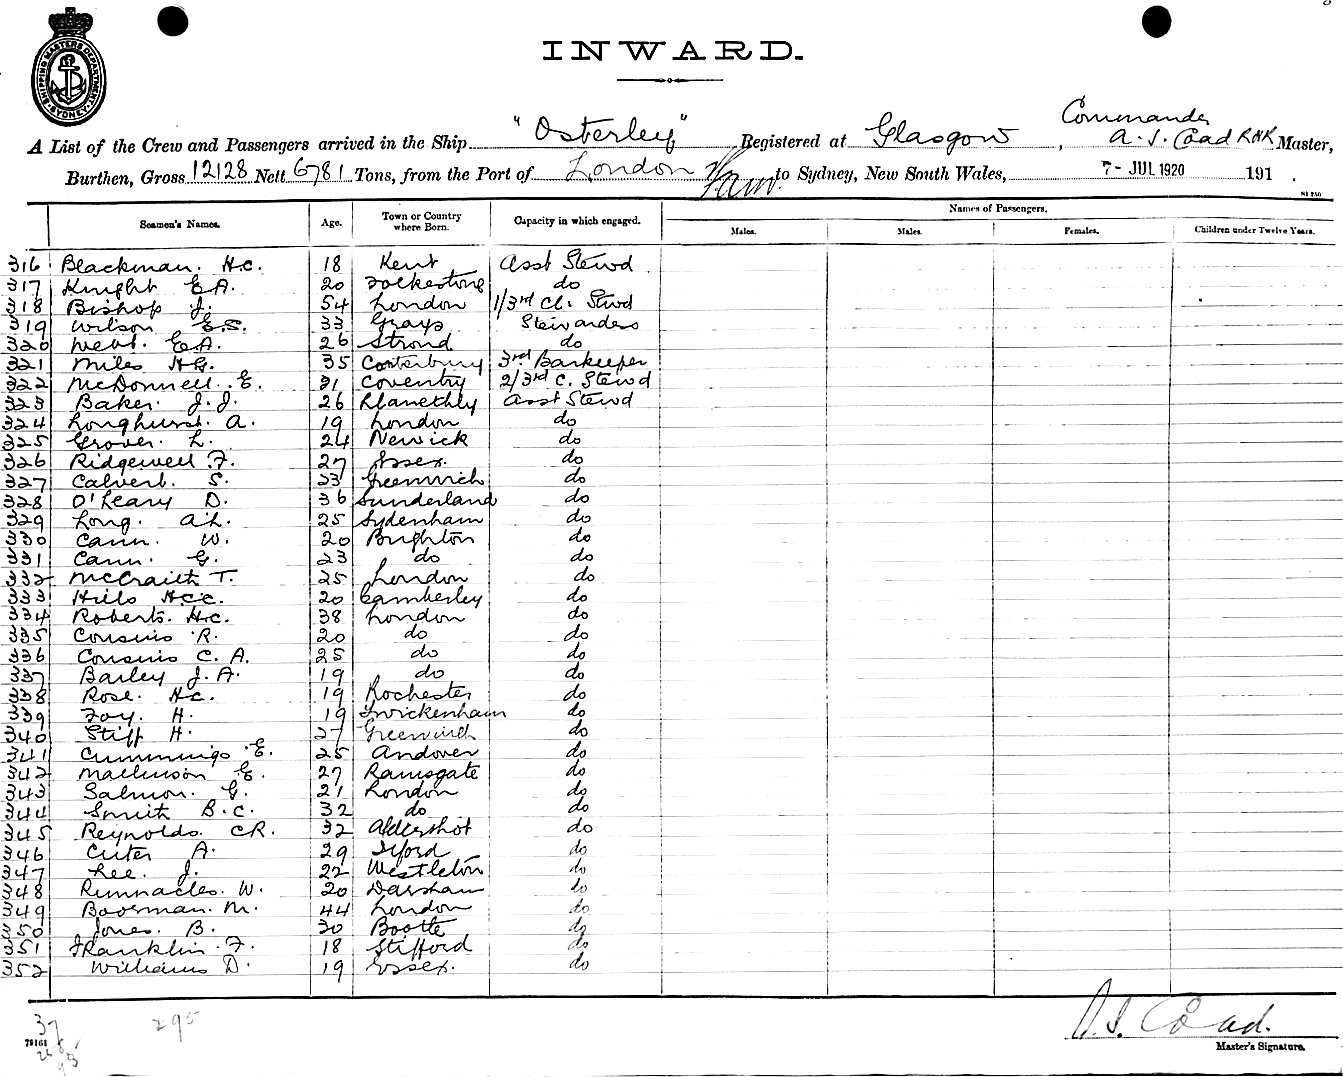 SHIPPING MASTERS DEPARTMENT SYDNEY
INWARD.
Commander
A List of the Crew and Passengers arrived in the Ship "Osterley" Registered at Glasgow, A. J. Coad RNR Master,
Burthen, Gross 12128 Nett 6781 Tons, from the Port of London to Sydney, New South Wales, 7- JUL 1920 191 .
Seamen's Names. Age. Town or Country where Born. Capacity in which engaged. Names of Passengers.
Males. Males. Females. Children under Twelve Years.
316 Blackman. H.C. 18 Kent Asst Stewd
317 Knight E.A. 20 Folkestone do
318 Bishop J. 54 London 1/3rd Cl. Stwd
319 Wilson E.S. 33 Grays Stewardess
320 West. E.A. 26 Strood do
321 Miles H.G. 35 Canterbury 3rd Barkeeper
322 McDonnell. E. 31 Coventry 2/3rd C. Stewd
323 Baker. J.J. 26 Llanethly Asst Stewd
324 Longhurst. A. 19 London do
325 Grover. L. 24 Newick do
326 Ridgewell F. 27 Essex. do
327 Calvert. S. 23 Greenwich do
328 O'Leary D. 36 Sunderland do
329 Long. A.L. 25 Sydenham do
330 Cann. W. 20 Brighton do
331 Cann. G. 23 do do
332 McCraith T. 25 London do
333 Hills H.C.C. 20 Camberley do
334 Roberts. H.C. 38 London do
335 Cousins R. 20 do do
336 Cousins C. A. 25 do do
337 Barley J.A. 19 do do
338 Rose. H.C. 19 Rochester do
339 Foy. H. 19 Twickenham do
340 Stiff H. 27 Greenwich do
341 Cummings E. 25 Andover do
342 Mallinson E. 27 Ramsgate do
343 Salmon. G. 21 London do
344 Smith B.C. 32 do do
345 Reynolds. C.R. 32 Aldershot do
346 Cuter A. 29 Ilford do
347 Lee. J. 22 Westleton do
348 Runnacles. W. 20 Darsham do
349 Boorman. M. 44 London do
350 Jones. B. 30 Bootle do
351 Franklin. F. 18 Stifford do
352 Williams D. 19 Essex. do
A.J. Coad.
37 295
79161 Master's Signature.